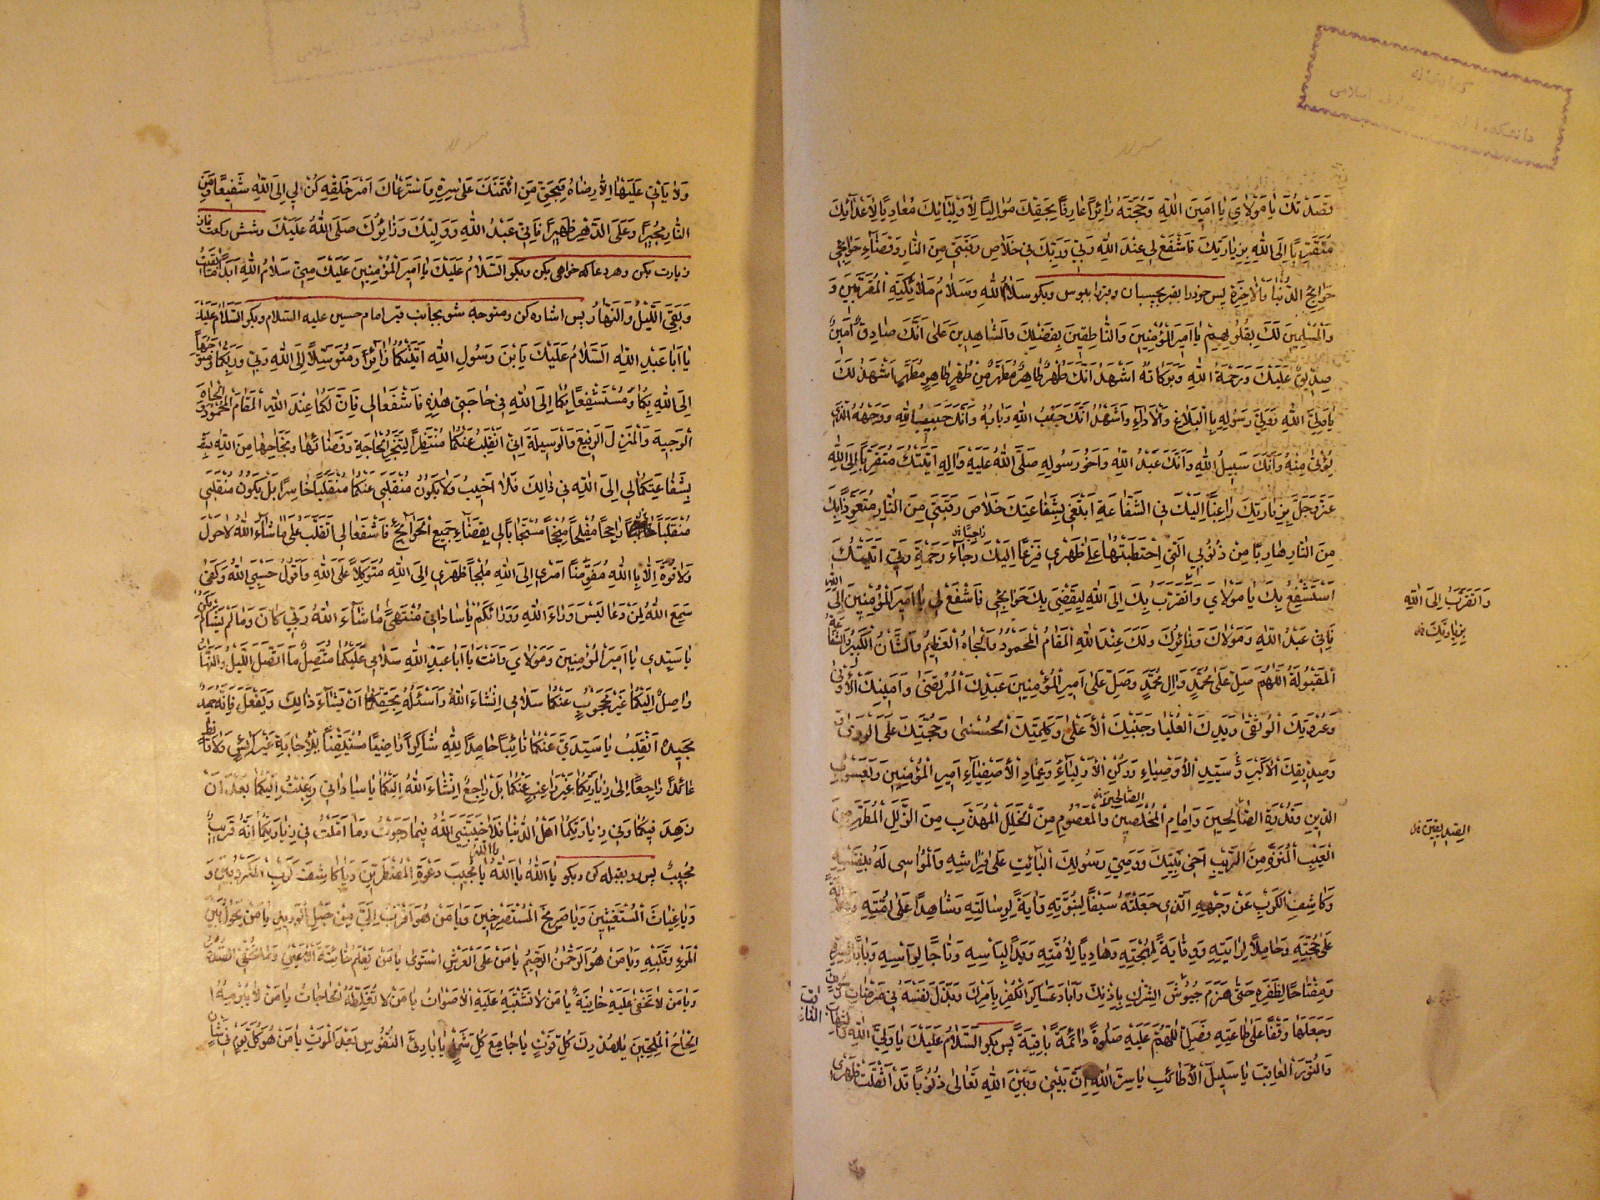 قصدتك يا مولاي يا امين الله وحجته زائرا عارفا بحقك مواليا لاوليائك معاديا لاعدائك
متقربا الى الله بزيارتك فاشفع لي عند الله ربي وربك في خلاص رقبتي من النار وقضاء حوائجي
حوائج الدنيا والاخرة پس خود را بقبر بچسبان وببوس وبكو سلام الله وسلام ملائكته المقربين و
والمسلمين لك بقلوبهم يا امير المؤمنين والناطقين بفضلك والشاهدين على انك صادق امين
صديق عليك ورحمة الله وبركاته اشهد انك طهر طاهر مطهر من طهر طاهر مطهر اشهد لك
يا ولي الله وولي رسوله بالبلاغ والاداء واشهد انك جنب الله وبابه وانك حبيب الله ووجهه الذي
يؤتى منه وانك سبيل الله وانك عبد الله واخو رسوله صلى الله عليه واله اتيتك متقربا الى الله
عز وجل بزيارتك راغبا اليك في الشفاعة ابتغي بشفاعتك خلاص رقبتي من النار متعوذا بك
من النار هاربا من ذنوبي التي احتطبتها على ظهري فزعا اليك رجاء رحمة ربي اتيتك
استشفع بك يا مولاي واتقرب بك الى الله ليقضي بك حوائجي فاشفع لي يا امير المؤمنين الى الله
واتقرب الى الله
بزيارتك
فاني عبد الله ومولاك وزائرك ولك عند الله المقام المحمود والجاه العظيم والشان الكبير والشفاعة
المقبولة اللهم صل على محمد وال محمد وصل على امير المؤمنين عبدك المرتضى وامينك الاوفى
وعروتك الوثقى ويدك العليا وجنبك الاعلى وكلمتك الحسنى وحجتك على الورى
وصديقك الاكبر وسيد الاوصياء وركن الاولياء وعماد الاصفياء امير المؤمنين ويعسوب
الدين وقدوة الصالحين وامام المخلصين والمعصوم من الخلل المهذب من الزلل المطهر من
الصديقين
العيب المنزه من الريب اخي نبيك ووصي رسولك البائت على فراشه والمواسي له بنفسه
وكاشف الكرب عن وجهه الذي جعلته سيفا لنبوته واية لرسالته وشاهدا على امته
على حجته وحاملا لرايته ووقاية لمهجته وهاديا لامته ويدا لباسه وتاجا لراسه
ومفتاحا لظفره حتى هزم جيوش الشرك باذنك واباد عساكر الكفر بامرك وبذل نفسه في مرضات
وجعلها وقفا على طاعته فصل اللهم عليه صلوة دائمة باقية پس بكو السلام عليك يا ولي الله
والنور العاقب يا سليل الاطائب يا سر الله ان بيني وبين الله تعالى ذنوبا قد اثقلت ظهري
ولا ياتي عليها الا رضاه فبحق من ائتمنك على سره واسترعاك امر خلقه كن لي الى الله شفيعا ومن
النار مجيرا وعلى الدهر ظهيرا فاني عبد الله ووليك وزائرك صلى الله عليك وشش ركعت نماز
زيارت بكن وهر دعا كه خواهي بكن وبكو السلام عليك يا امير المؤمنين عليك مني سلام الله ابدا ما بقيت
وبقي الليل والنهار پس اشاره كن ومتوجه شو بجانب قبر امام حسين عليه السلام وبكو السلام عليك
يا ابا عبد الله السلام عليك يا بن رسول الله اتيتكما زائرا ومتوسلا الى الله ربي وربكما ومتوجها
الى الله بكما ومستشفعا بكما الى الله في حاجتي هذه فاشفعا لي فان لكما عند الله المقام المحمود والجاه
الوجيه والمنزل الرفيع والوسيلة اني انقلب عنكما منتظرا لتنجز الحاجة وقضائها ونجاحها من الله
بشفاعتكما لي الى الله في ذلك فلا اخيب ولا يكون منقلبي عنكما منقلبا خاسرا بل يكون منقلبي
منقلبا راجحا مفلحا منجحا مستجابا لي بقضاء جميع الحوائج فاشفعا لي انقلب على ما شاء الله لا حول
ولا قوة الا بالله مفوضا امري الى الله ملجأ ظهري الى الله متوكلا على الله واقول حسبي الله وكفى
سمع الله لمن دعا ليس وراء الله ووراءكم يا ساداتي منتهى ما شاء الله ربي كان وما لم يشأ لم يكن
يا سيدي يا امير المؤمنين ومولاي وانت يا ابا عبد الله سلامي عليكما متصل ما اتصل الليل والنهار
واصل اليكما غير محجوب عنكما سلامي انشاء الله واسئله بحقكما ان يشاء ذلك ويفعل فانه حميد
مجيد انقلب يا سيدي عنكما تائبا حامدا لله شاكرا راضيا مستيقنا للاجابة غير ايس ولا قانط
عائدا راجعا الى زيارتكما غير راغب عنكما بل راجع انشاء الله اليكما يا ساداتي رغبت اليكما بعد ان
زهد فيكما وفي زيارتكما اهل الدنيا فلا خيبني الله فيما رجوت وما املت في زيارتكما انه قريب
مجيب پس رو بقبله كن وبكو يا الله يا الله يا الله يا مجيب دعوة المضطرين ويا كاشف كرب المكروبين و
ويا غياث المستغيثين ويا صريخ المستصرخين ويا من هو اقرب الي من حبل الوريد يا من يحول بين
المرء وقلبه ويا من هو الرحمن الرحيم يا من على العرش استوى يا من يعلم خائنة الاعين وما تخفي الصدور
ويا من لا تخفى عليه خافية يا من لا تشتبه عليه الاصوات يا من لا تغلطه الحاجات ويا من لا يبرمه
الحاح الملحين يا مدرك كل فوت يا جامع كل شمل يا بارئ النفوس بعد الموت يا من هو كل يوم في شأن